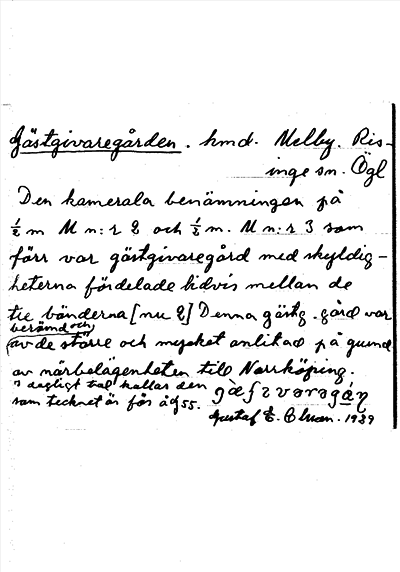 Gästgivaregården. hmd. Melby. Ris-
inge sn. Ögl
Den kamerala benämningen på
½ m M n:r 2 och ½ m. M n:r 3 som
förr var gästgivaregård med skyldig-
heterna fördelade tidvis mellan de
tre bönderna [nu 2] Denna gästg. gård var
berömd och
av de större och mycket anlitad på grund
av närbelägenheten till Norrköping.
I dagligt tal kallas den
som tecknet är för
Gustaf E. 1939